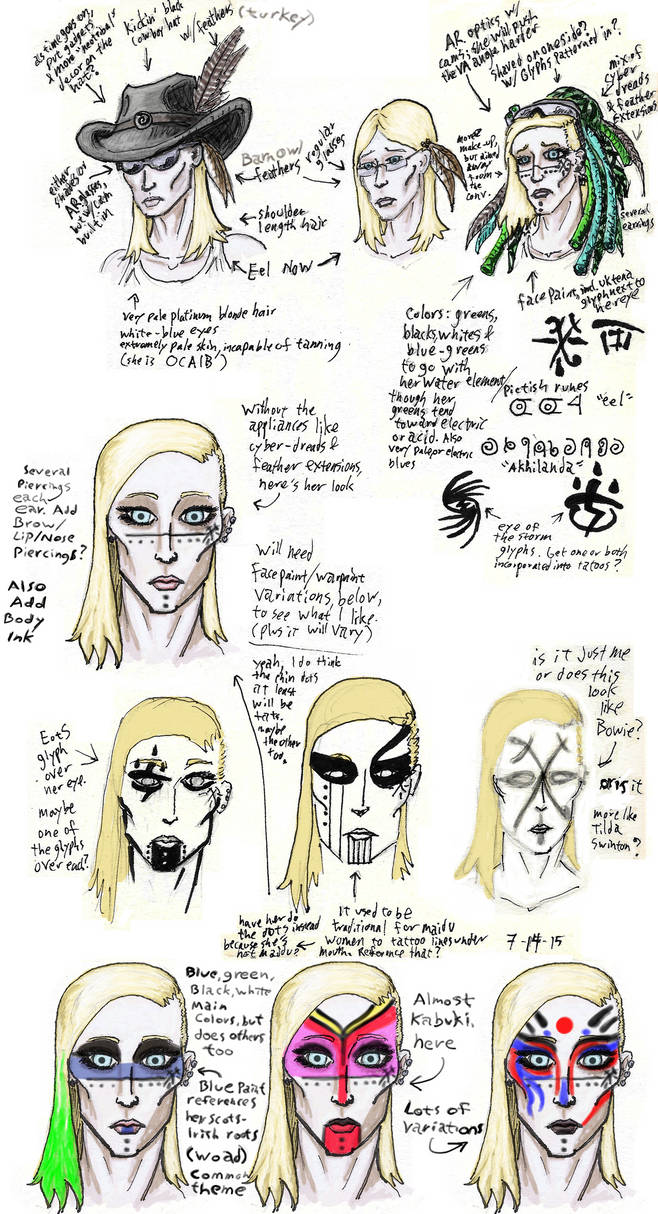 as time goes on,
put gadgets
& more "neotribal"
decor on the
hat?
Kickin' black
cowboy hat
w/ feathers
(turkey)
AR optics w/
cams; she will push
the VA angle harder
shaved on one side?
w/ glyphs patterned in?
mix of
cyber
dreads
& feather
extensions
either
shades or
AR glasses,
built in
Barn owl
feathers
regular
glasses
more
make-up,
but aimed
away
from
the
conv.
several
earrings
shoulder-
length hair
Eel Now
very pale platinum blonde hair
white-blue eyes
extremely pale skin, incapable of tanning
(she is OCA1B)
face paint, incl. uktena
glyph next to
her eye
Colors: greens,
blacks, whites &
blue-greens
to go with
her water element/
though her
greens tend
toward electric
or acid. Also
very pale or electric
blues
Pictish runes
"eel"
"Akhilanda"
eye of
the storm
glyphs. Get one or both
incorporated into tatoos?
Without the
appliances like
cyber-dreads &
feather extensions,
here's her look
Several
Piercings
each
ear. Add
Brow/
Lip/Nose
Piercings?
Also
Add
Body
Ink
Will need
Facepaint/warpaint
variations, below,
to see what I like.
(plus it will vary)
yeah, I do think
the chin dots
at least
will be
tats.
maybe
the other
too.
is it just me
or does this
look
like
Bowie?
or is it
more like
Tilda
Swinton?
EotS
glyph
over
her eye.
maybe
one of
the glyphs
over each?
have her do
the dots instead
because she's
not Maidu?
It used to be
traditional for maidu
women to tattoo lines under
mouth. Reference that?
7-14-15
Blue, green,
Black, white
Main
Colors, but
does others
too
Blue Paint
references
her Scots-
Irish roots
(woad)
Common
theme
Almost
Kabuki,
here
Lots of
variations